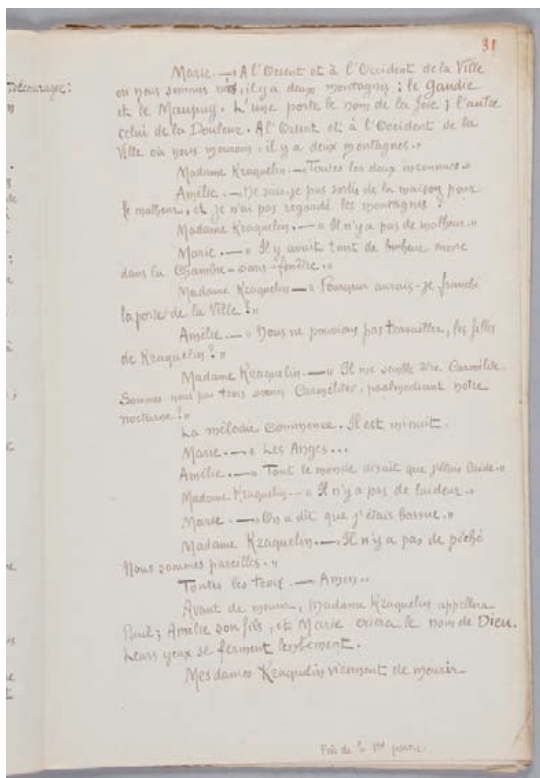 31
découragée :
Marie. — « A l'Orient et à l'Occident de la Ville
où nous sommes nés, il y a deux montagnes : le Gaudie
et le Maupuy. L'une porte le nom de la Joie ; l'autre
celui de la Douleur. A l'Orient et à l'Occident de la
Ville où nous mourons, il y a deux montagnes. »
Madame Kraquelin. — Toutes les deux inconnues. »
Amélie. — Ne suis-je pas sortie de la maison pour
le malheur, et je n'ai pas regardé les montagnes ?
Madame Kraquelin. — « Il n'y a pas de malheur. »
Marie. — « Il y avait tant de bonheur encore
dans la Chambre-sans-fenêtre. »
Madame Kraquelin — « Pourquoi aurais-je franchi
la porte de la Ville ? »
Amélie. — « Nous ne pouvions pas travailler, les filles
de Kraquelin ? »
Madame Kraquelin. — « Il me semble être Carmélite.
Sommes-nous pas trois sœurs Carmélites, psalmodiant notre
nocturne ? »
La mélodie commence. Il est minuit.
Marie. — « Les Anges...
Amélie. — « Tout le monde disait que j'étais laide. »
Madame Kraquelin. — « Il n'y a pas de laideur. »
Marie. — On a dit que j'étais bossue. »
Madame Kraquelin. — Il n'y a pas de péché
Nous sommes pareilles. »
Toutes les trois. — Amen. »
Avant de mourir, Madame Kraquelin appellera
Paul ; Amélie son fils, et Marie criera le nom de Dieu.
Leurs yeux se ferment lentement.
Mesdames Kraquelin viennent de mourir
Fin de la partie.